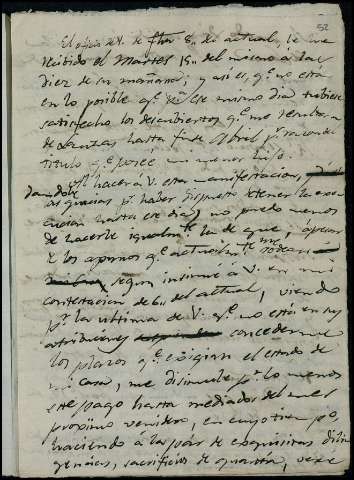 52
El oficio de V. de fha 8,, del actual, lo he
recibido el Martes 15,, del mismo á las
diez de su mañana; y asi es, qe. no está
en lo posible qe. en ese mismo dia tubiese
satisfecho los descubiertos qe. me resultan
de Lanzas hasta fin de Abril pr. razon de
titulo qe. posee mi menor hijo.
Al hacerá V. esta manifestacion,
dandole las gracias pr. haber dispuesto detener la exe
cucion hasta ese dia, no puedo menos
de hacerle igualmte. la de que, apesar
de los apuros qe. actualmte. me rodean
segun insinué á V. en mi
contestacion de 6,, del actual, viendo
pr. la ultima de V. qe. no está en sus
atribuciones concederme
los plazos qe. exigian el estado de
mi casa, me disimule pr. lo menos
este pago hasta mediados del mes
proximo venidero, en cuyo tiempo,
haciendo á la par de exquisitas dili
gencias, sacrificios de quantía, veré